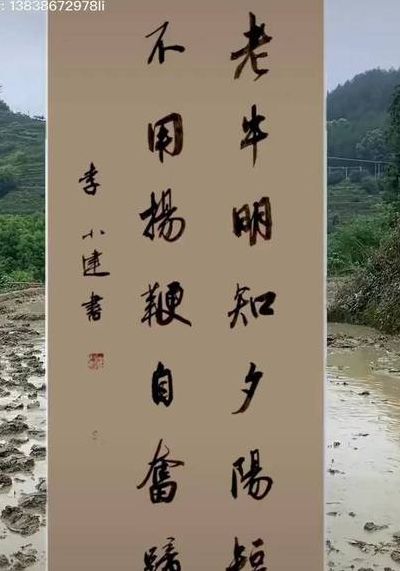 : 13838672978li
老牛明知夕陽短
不用揚鞭自奮蹄
李小建書